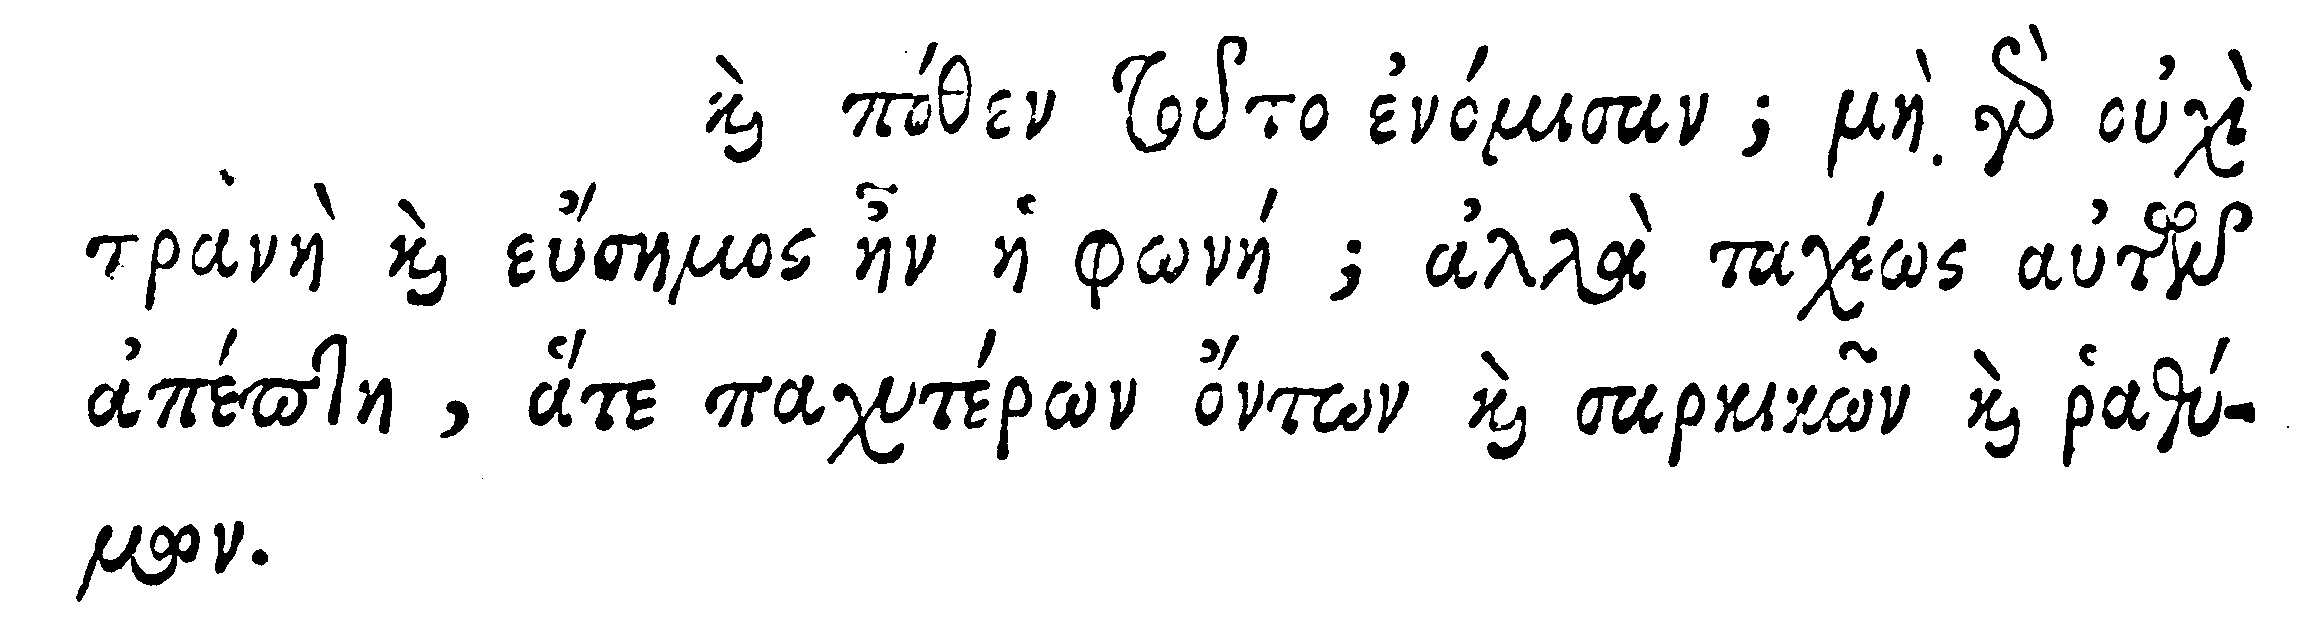 καὶ πόθεν τοῦτο ἐνόμισαν; μὴ γὰρ οὐχὶ
τρανὴ καὶ εὔσημος ἦν ἡ φωνή; ἀλλὰ ταχέως αὐτῶν
ἀπέπτη, ἅτε παχυτέρων ὄντων καὶ σαρκικῶν καὶ ῥαθύ-
μων.